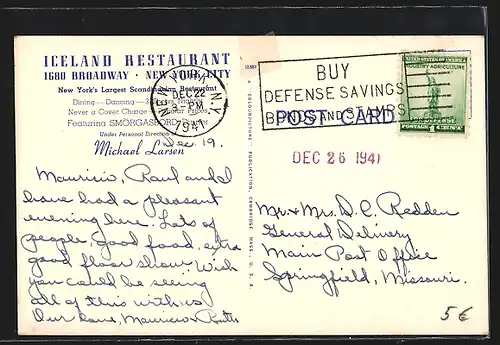 ICELAND RESTAURANT
1680 BROADWAY · NEW YORK CITY
New York's Largest Scandinavian Restaurant
Dining — Dancing — 3
Never a Cover Charge
Featuring SMORGASBORD
Under Personal Direction
Michael Larsen
NEW YORK, N.Y.
DEC 22
PM
1941
BUY
DEFENSE SAVINGS
BONDS AND STAMPS
POST CARD
UNITED STATES OF AMERICA
INDUSTRY AGRICULTURE
FOR DEFENSE
POSTAGE 1 CENT
DEC 26 1941
Dec. 19,
Mauricio, Paul and I
have had a pleasant
evening here. Lots of
people, good food, extra
good floor show. Wish
you could be seeing
all of this with us
Our love, Mauricio + Ruth
Mr. & Mrs. D. C. Redden
General Delivery
Main Post Office
Springfield, Missouri.
5€